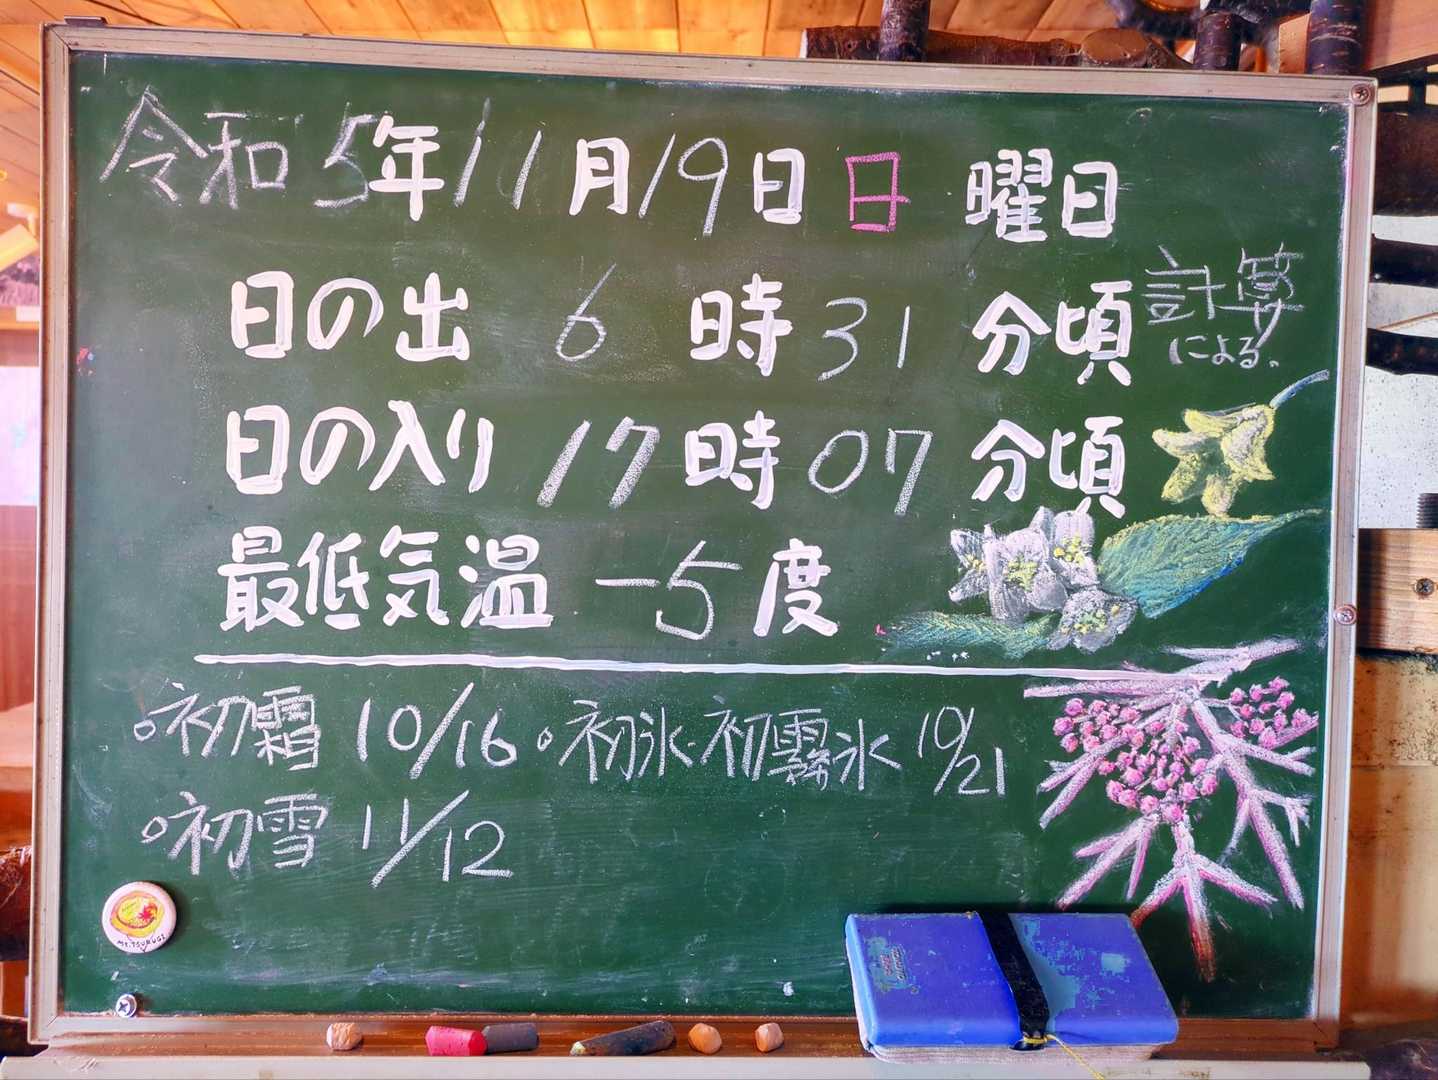 令和5年11月19日日曜日
日の出 6時31分頃 計算
による。
日の入り 17時07分頃
最低気温 -5度
○初霜 10/16 ○初氷・初霧氷 10/21
○初雪 11/12
Mt.TSURUGI